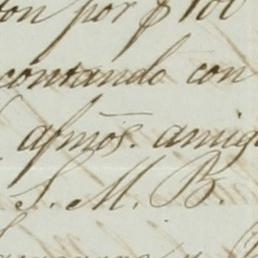 por $ 100
contando con
afmõs. amig
S. M. B.